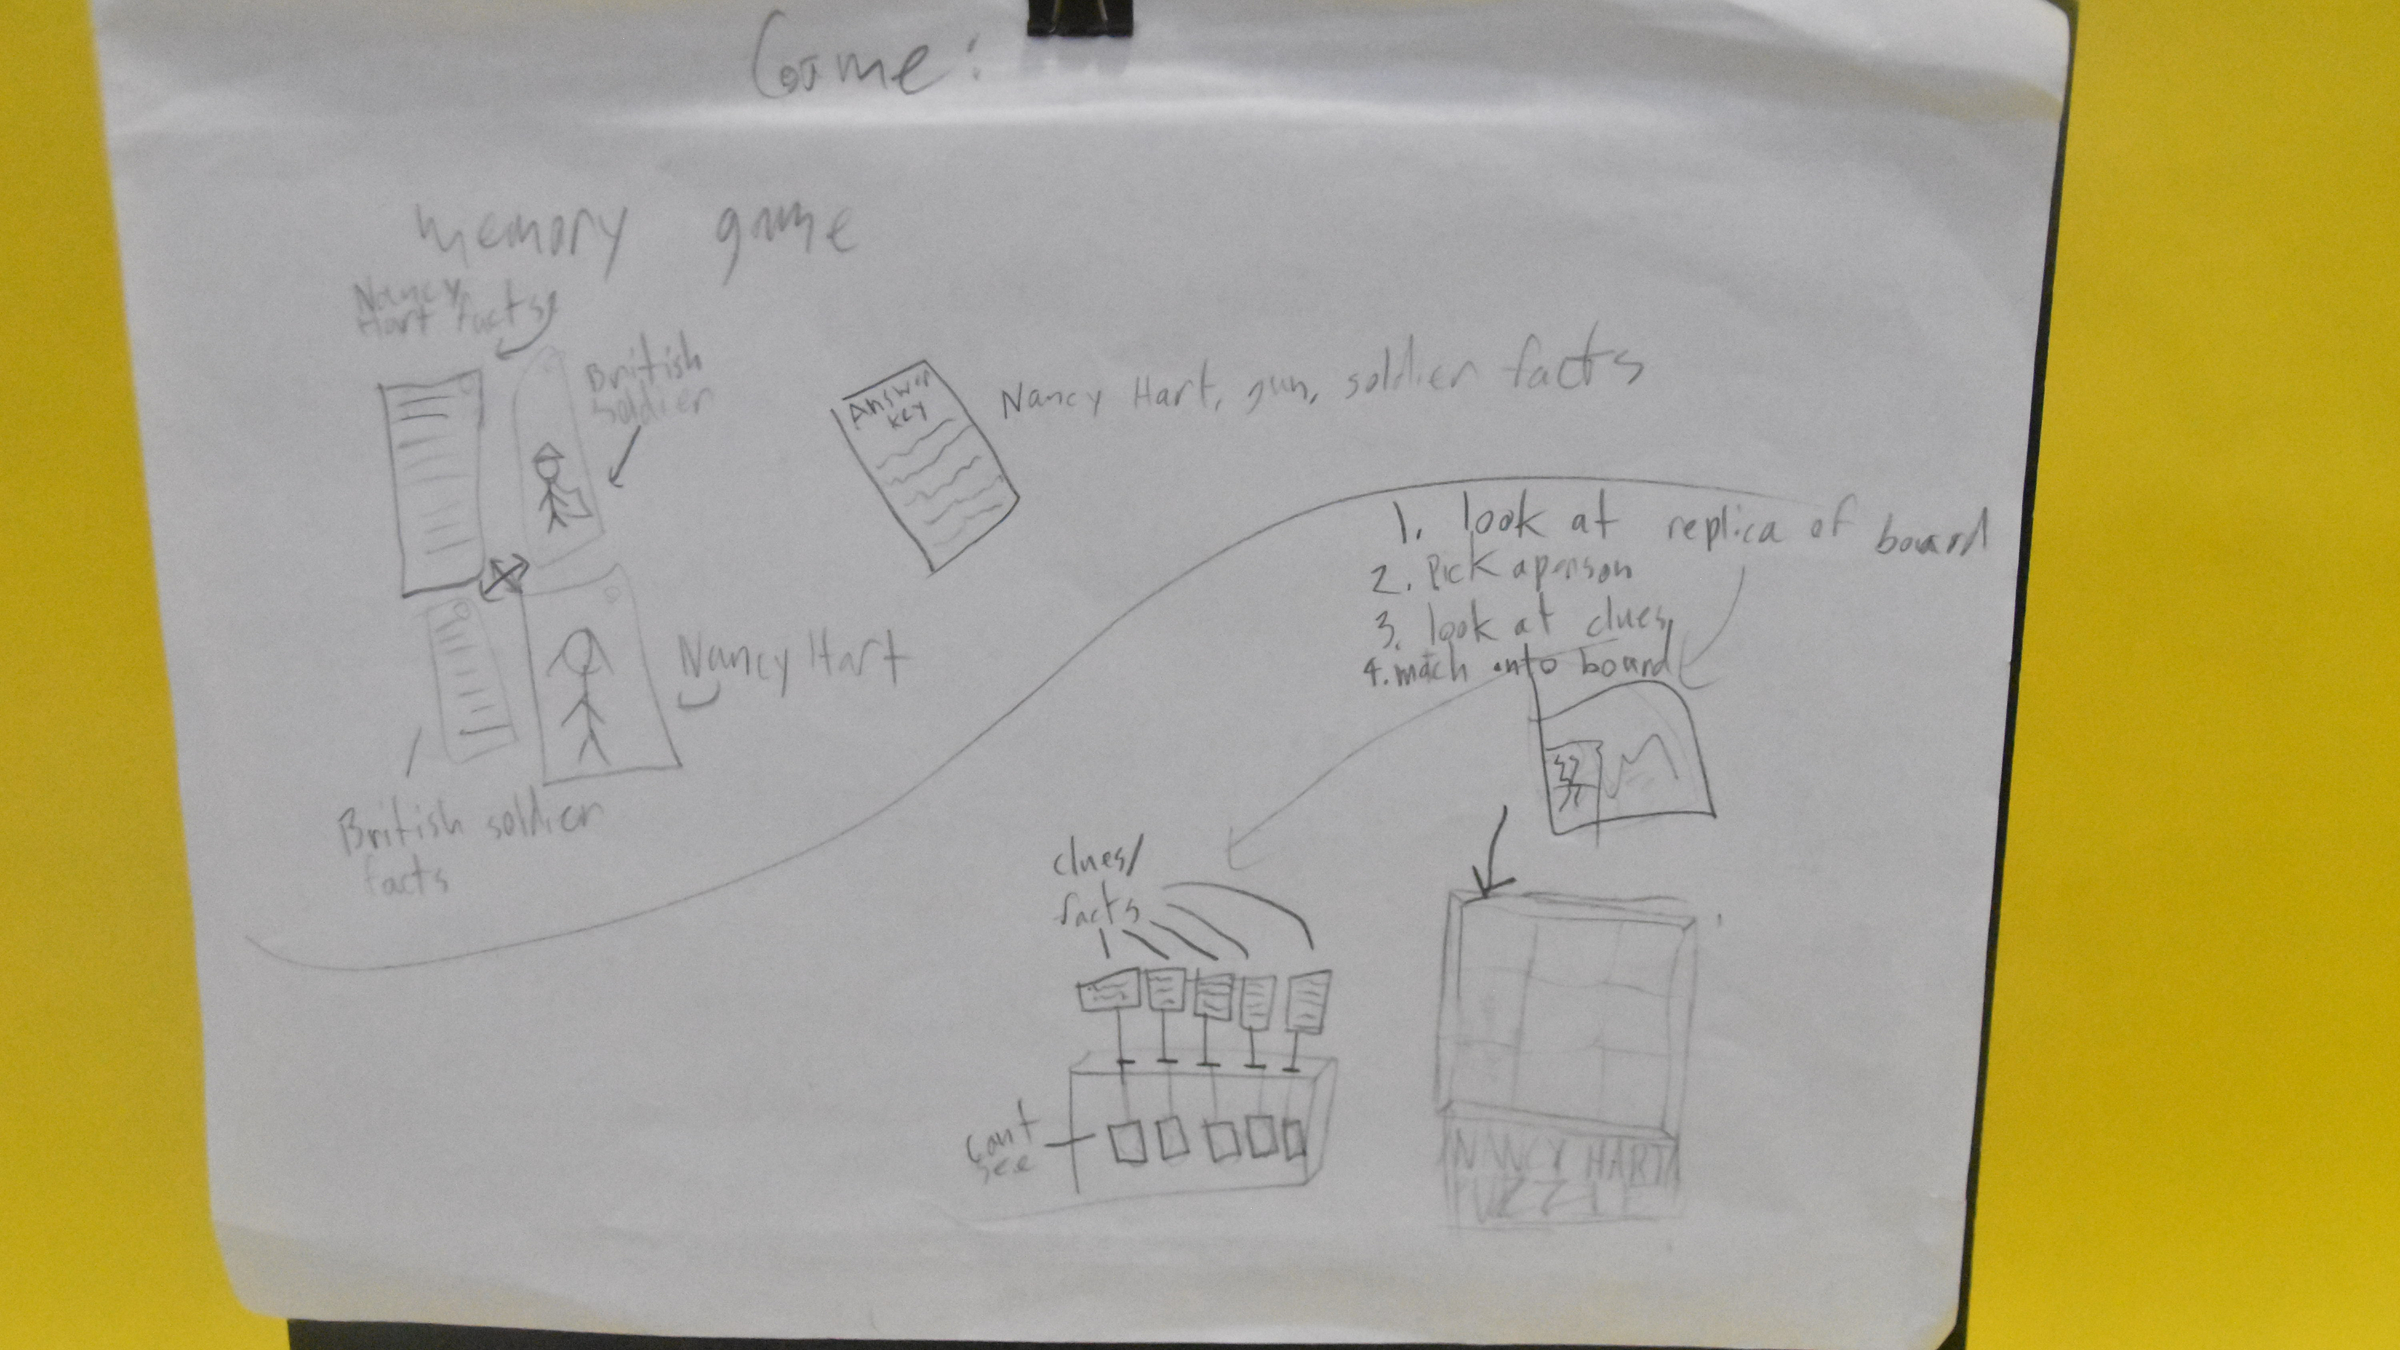 Game:
memory game
Nancy
Hart facts
British
soldier
Answer
key
Nancy Hart, gun, soldier facts
Nancy Hart
British soldier
facts
1. look at replica of board
2. Pick a person
3. look at clues
4. match onto board
clues/
facts
cant
see
NANCY HART
PUZZLE